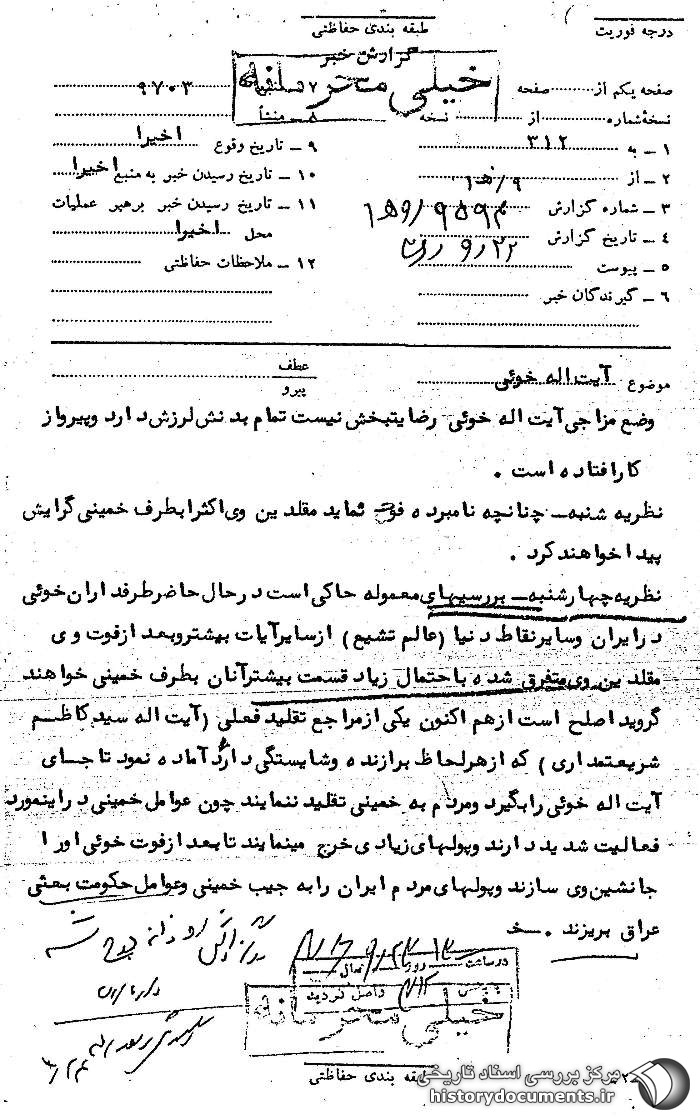 درجه فوریت
طبقه بندی حفاظتی
گزارش خبر
خیلی محرمانه
صفحه یکم از صفحه
۹۷۰۳
نسخهٔ شماره از نسخه
۸ ـ منشأ
۱ ـ به ۳۱۲
۹ ـ تاریخ وقوع اخیرا
۲ ـ از ۹/ه۱
۱۰ ـ تاریخ رسیدن خبر به منبع اخیرا
۳ ـ شماره گزارش
۱۱ ـ تاریخ رسیدن خبر برهبر عملیات
محل اخیرا
۴ ـ تاریخ گزارش
۵ ـ پیوست
۱۲ ـ ملاحظات حفاظتی
۶ ـ گیرندگان خبر
موضوع آیت اله خوئی
عطف
پیرو
وضع مزاجی آیت اله خوئی رضایتبخش نیست تمام بدنش لرزش دارد و پیر و از
کار افتاده است .
نظریه شنبه ـ چنانچه نامبرده فوت نماید مقلدین وی اکثرا بطرف خمینی گرایش
پیدا خواهند کرد .
نظریه چهارشنبه ـ بررسیهای معموله حاکی است در حال حاضر طرفداران خوئی
در ایران و سایر نقاط دنیا (عالم تشیع) از سایر آیات بیشتر و بعد از فوت وی
مقلدین وی متفرق شده با حتمال زیاد قسمت بیشتر آنان بطرف خمینی خواهند
گروید اصلح است از هم اکنون یکی از مراجع تقلید فعلی (آیت اله سید کاظم
شریعتمداری) که از هر لحاظ برازنده و شایستگی دارد آماده نمود تا جای
آیت اله خوئی را بگیرد و مردم به خمینی تقلید ننمایند چون عوامل خمینی در اینمورد
فعالیت شدید دارند و پولهای زیادی خرج مینمایند تا بعد از فوت خوئی او را
جانشین وی سازند و پولهای مردم ایران را به جیب خمینی و عوامل حکومت بعثی
عراق بریزند .
در ساعت روز
واصل گردید
خیلی محرمانه
طبقه بندی حفاظتی
مرکز بررسی اسناد تاریخی
historydocuments.ir